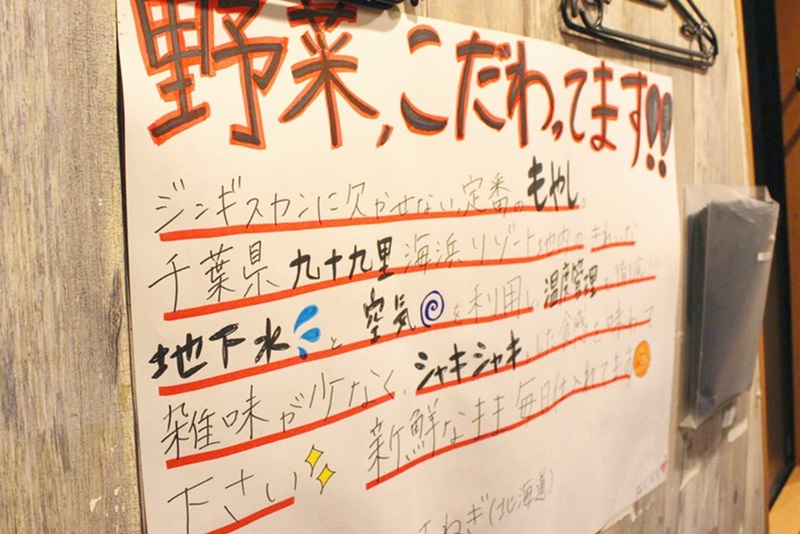 野菜、こだわってます!!
ジンギスカンに欠かせない定番のもやし。
千葉県九十九里海浜リゾート地内のきれいな
地下水と空気を利用し、温度管理を徹底...
雑味が少なく、シャキシャキした食感を味わって
下さい 新鮮なまま毎日仕入れてます
ねぎ(北海道)